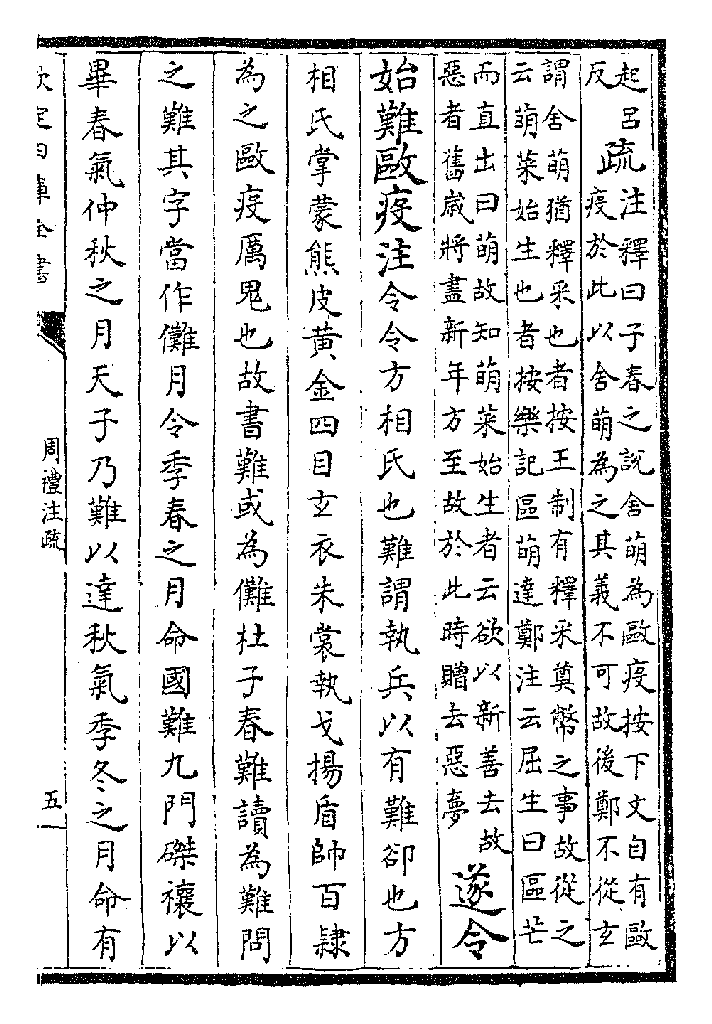 起呂疏注釋曰子春之說舍萌為歐疫按下文自有歐
反疫於此以舍萌為之其義不可故後鄭不從玄
謂舍萌猶釋采也者按王制有釋采奠幣之事故從之
云萌菜始生也者按樂記區萌達鄭注云屈生曰區芒
而直出曰萌故知萌菜始生者云欲以新善去故
惡者舊歲將盡新年方至故於此時贈去惡夢
遂令
始難歐疫注令令方相氏也難謂執兵以有難郤也方
相氏掌蒙熊皮黃金四目玄衣朱裳執戈揚盾帥百隸
為之歐疫厲鬼也故書難或為儺杜子春難讀為難問
之難其字當作儺月令季春之月命國難九門磔禳以
畢春氣仲秋之月天子乃難以達秋氣季冬之月命有
欽定四庫全書
周禮注疏
五